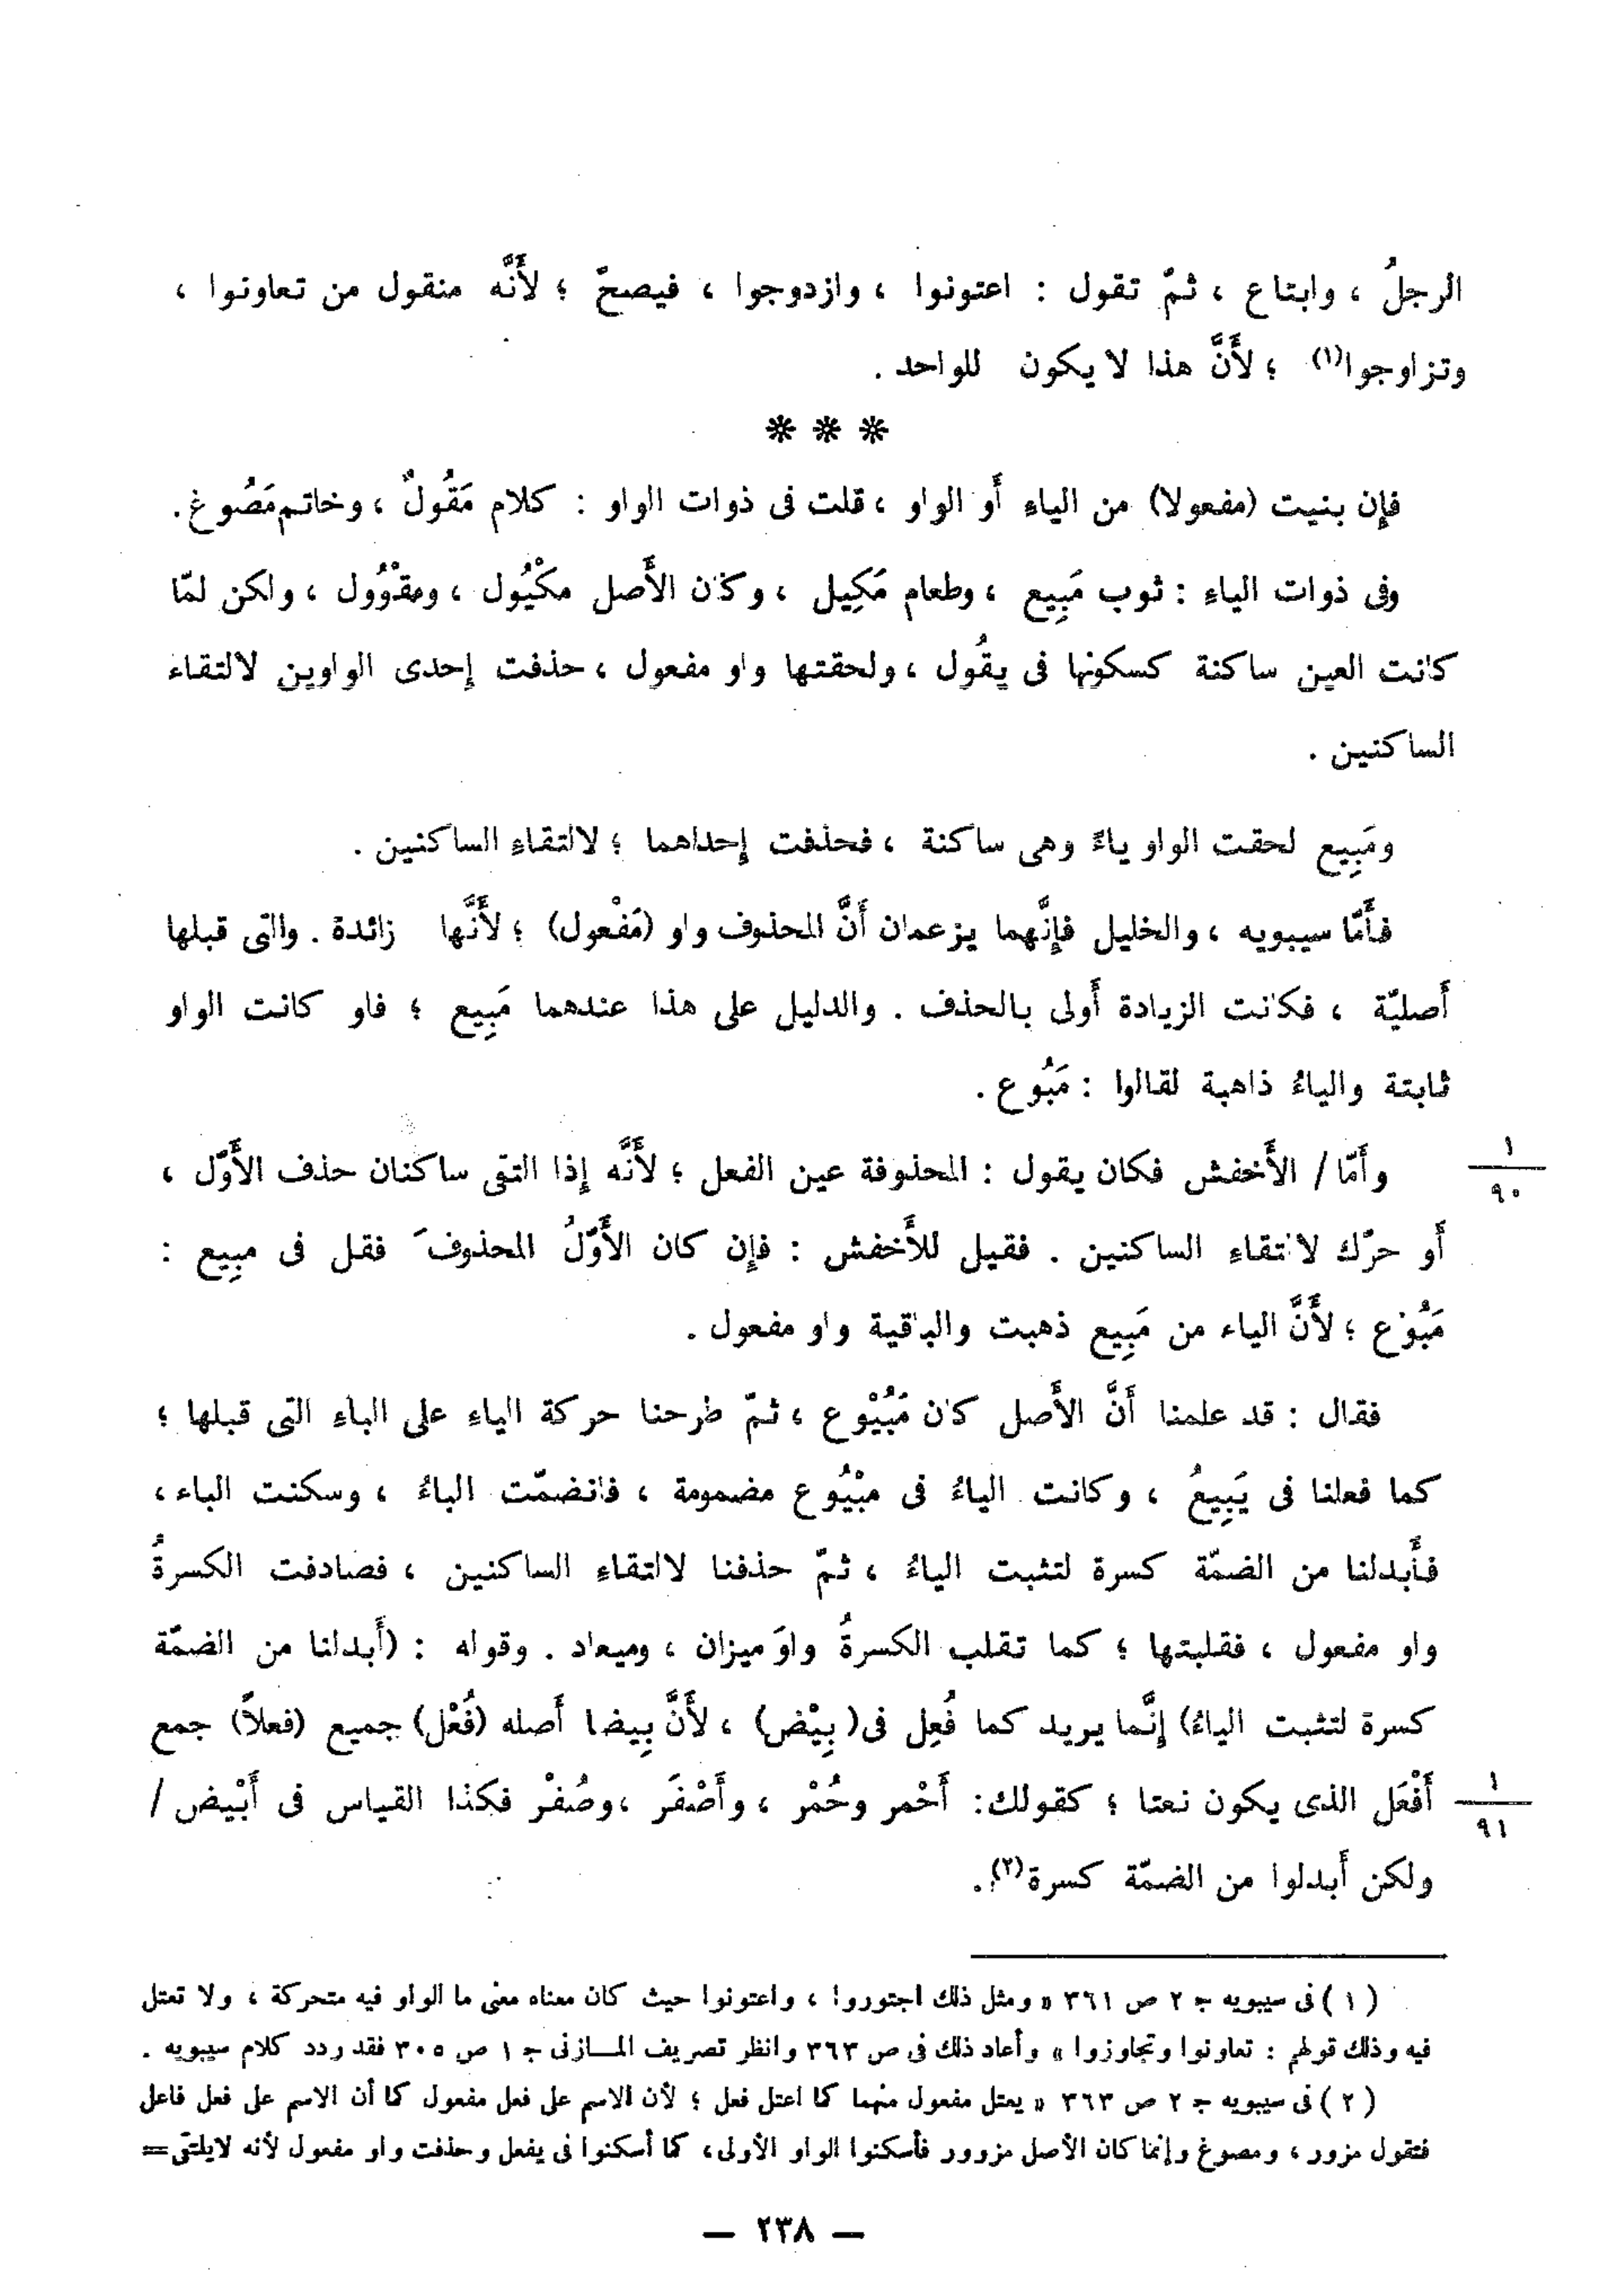 الرجلُ ، وابتاع ، ثمّ تقول : اعتونوا ، وازدوجوا ، فيصحّ ؛ لأَنَّه منقول من تعاونوا ،
وتزاوجوا(١) ؛ لأَنَّ هذا لا يكون للواحد .
* * *
فإن بنيت (مفعولا) من الياءِ أَو الواو ، قلت فى ذوات الواو : كلام مَقُولٌ ، وخاتم مَصُوغ .
وفى ذوات الياءِ : ثوب مَبِيع ، وطعام مَكِيل ، وكان الأَصل مكْيُول ، ومقْوُول ، ولكن لمّا
كانت العين ساكنة كسكونها فى يقُول ، ولحقتها واو مفعول ، حذفت إحدى الواوين لالتقاء
الساكنين .
ومَبِيع لحقت الواو ياءً وهى ساكنة ، فحذفت إحداهما ؛ لالتقاءِ الساكنين .
فأَمّا سيبويه ، والخليل فإنَّهما يزعمان أَنَّ المحذوف واو (مَفْعول) ؛ لأَنَّها زائدة . والتى قبلها
أَصليّة ، فكانت الزيادة أَولى بالحذف . والدليل على هذا عندهما مَبِيع ؛ فاو كانت الواو
ثابتة والياءُ ذاهبة لقالوا : مَبُوع .
وأَمّا / الأَخفش فكان يقول : المحذوفة عين الفعل ؛ لأَنَّه إذا التقى ساكنان حذف الأَوّل ،
١
٩٠
أَو حرّك لالتقاءِ الساكنين . فقيل للأَخفش : فإن كان الأَوّلُ المحذوفَ فقل فى مبِيع :
مَبُوع ؛ لأَنَّ الياء من مَبِيع ذهبت والباقية واو مفعول .
فقال : قد علمنا أَنَّ الأَصل كان مَبْيُوع ، ثمّ طرحنا حركة الياءِ على الباءِ التى قبلها ؛
كما فعلنا فى يَبِيعُ ، وكانت الياءُ فى مبْيُوع مضمومة ، فانضمّت الباءُ ، وسكنت الياء ،
فأَبدلنا من الضمّة كسرة لتثبت الياءُ ، ثمّ حذفنا لالتقاءِ الساكنين ، فصادفت الكسرةُ
واو مفعول ، فقلبتها ؛ كما تقلب الكسرةُ واوَ ميزان ، وميعاد . وقوله : (أَبدلنا من الضمّة
كسرة لتثبت الياءُ) إنَّما يريد كما فُعِل فى (بِيْض) ، لأَنَّ بِيضا أَصله (فُعْل) جميع (فعلاً) جمع
أَفْعَل الذى يكون نعتا ؛ كقولك : أَحْمر وحُمْر ، وأَصْفَر ، وصُفْر فكذا القياس فى أَبْيض /
١
٩١
ولكن أَبدلوا من الضمّة كسرة(٢) .
(١) فى سيبويه ج ٢ ص ٣٦١ « ومثل ذلك اجتوروا ، واعتونوا حيث كان معناه معنى ما الواو فيه متحركة ، ولا تعتل
فيه وذلك قولهم : تعاونوا وتجاوزوا » وأعاد ذلك فى ص ٣٦٣ وانظر تصريف المازنى ج ١ ص ٣٠٥ فقد ردد كلام سيبويه .
(٢) فى سيبويه ج ٢ ص ٣٦٣ « يعتل مفعول منهما كما اعتل فعل ؛ لأن الاسم على فعل مفعول كما أن الاسم على فعل فاعل
فتقول مزور ، ومصوغ وإنما كان الأصل مزوور فأسكنوا الواو الأولى ، كما أسكنوا فى يفعل وحذفت واو مفعول لأنه لايلتقى =
— ٢٣٨ —